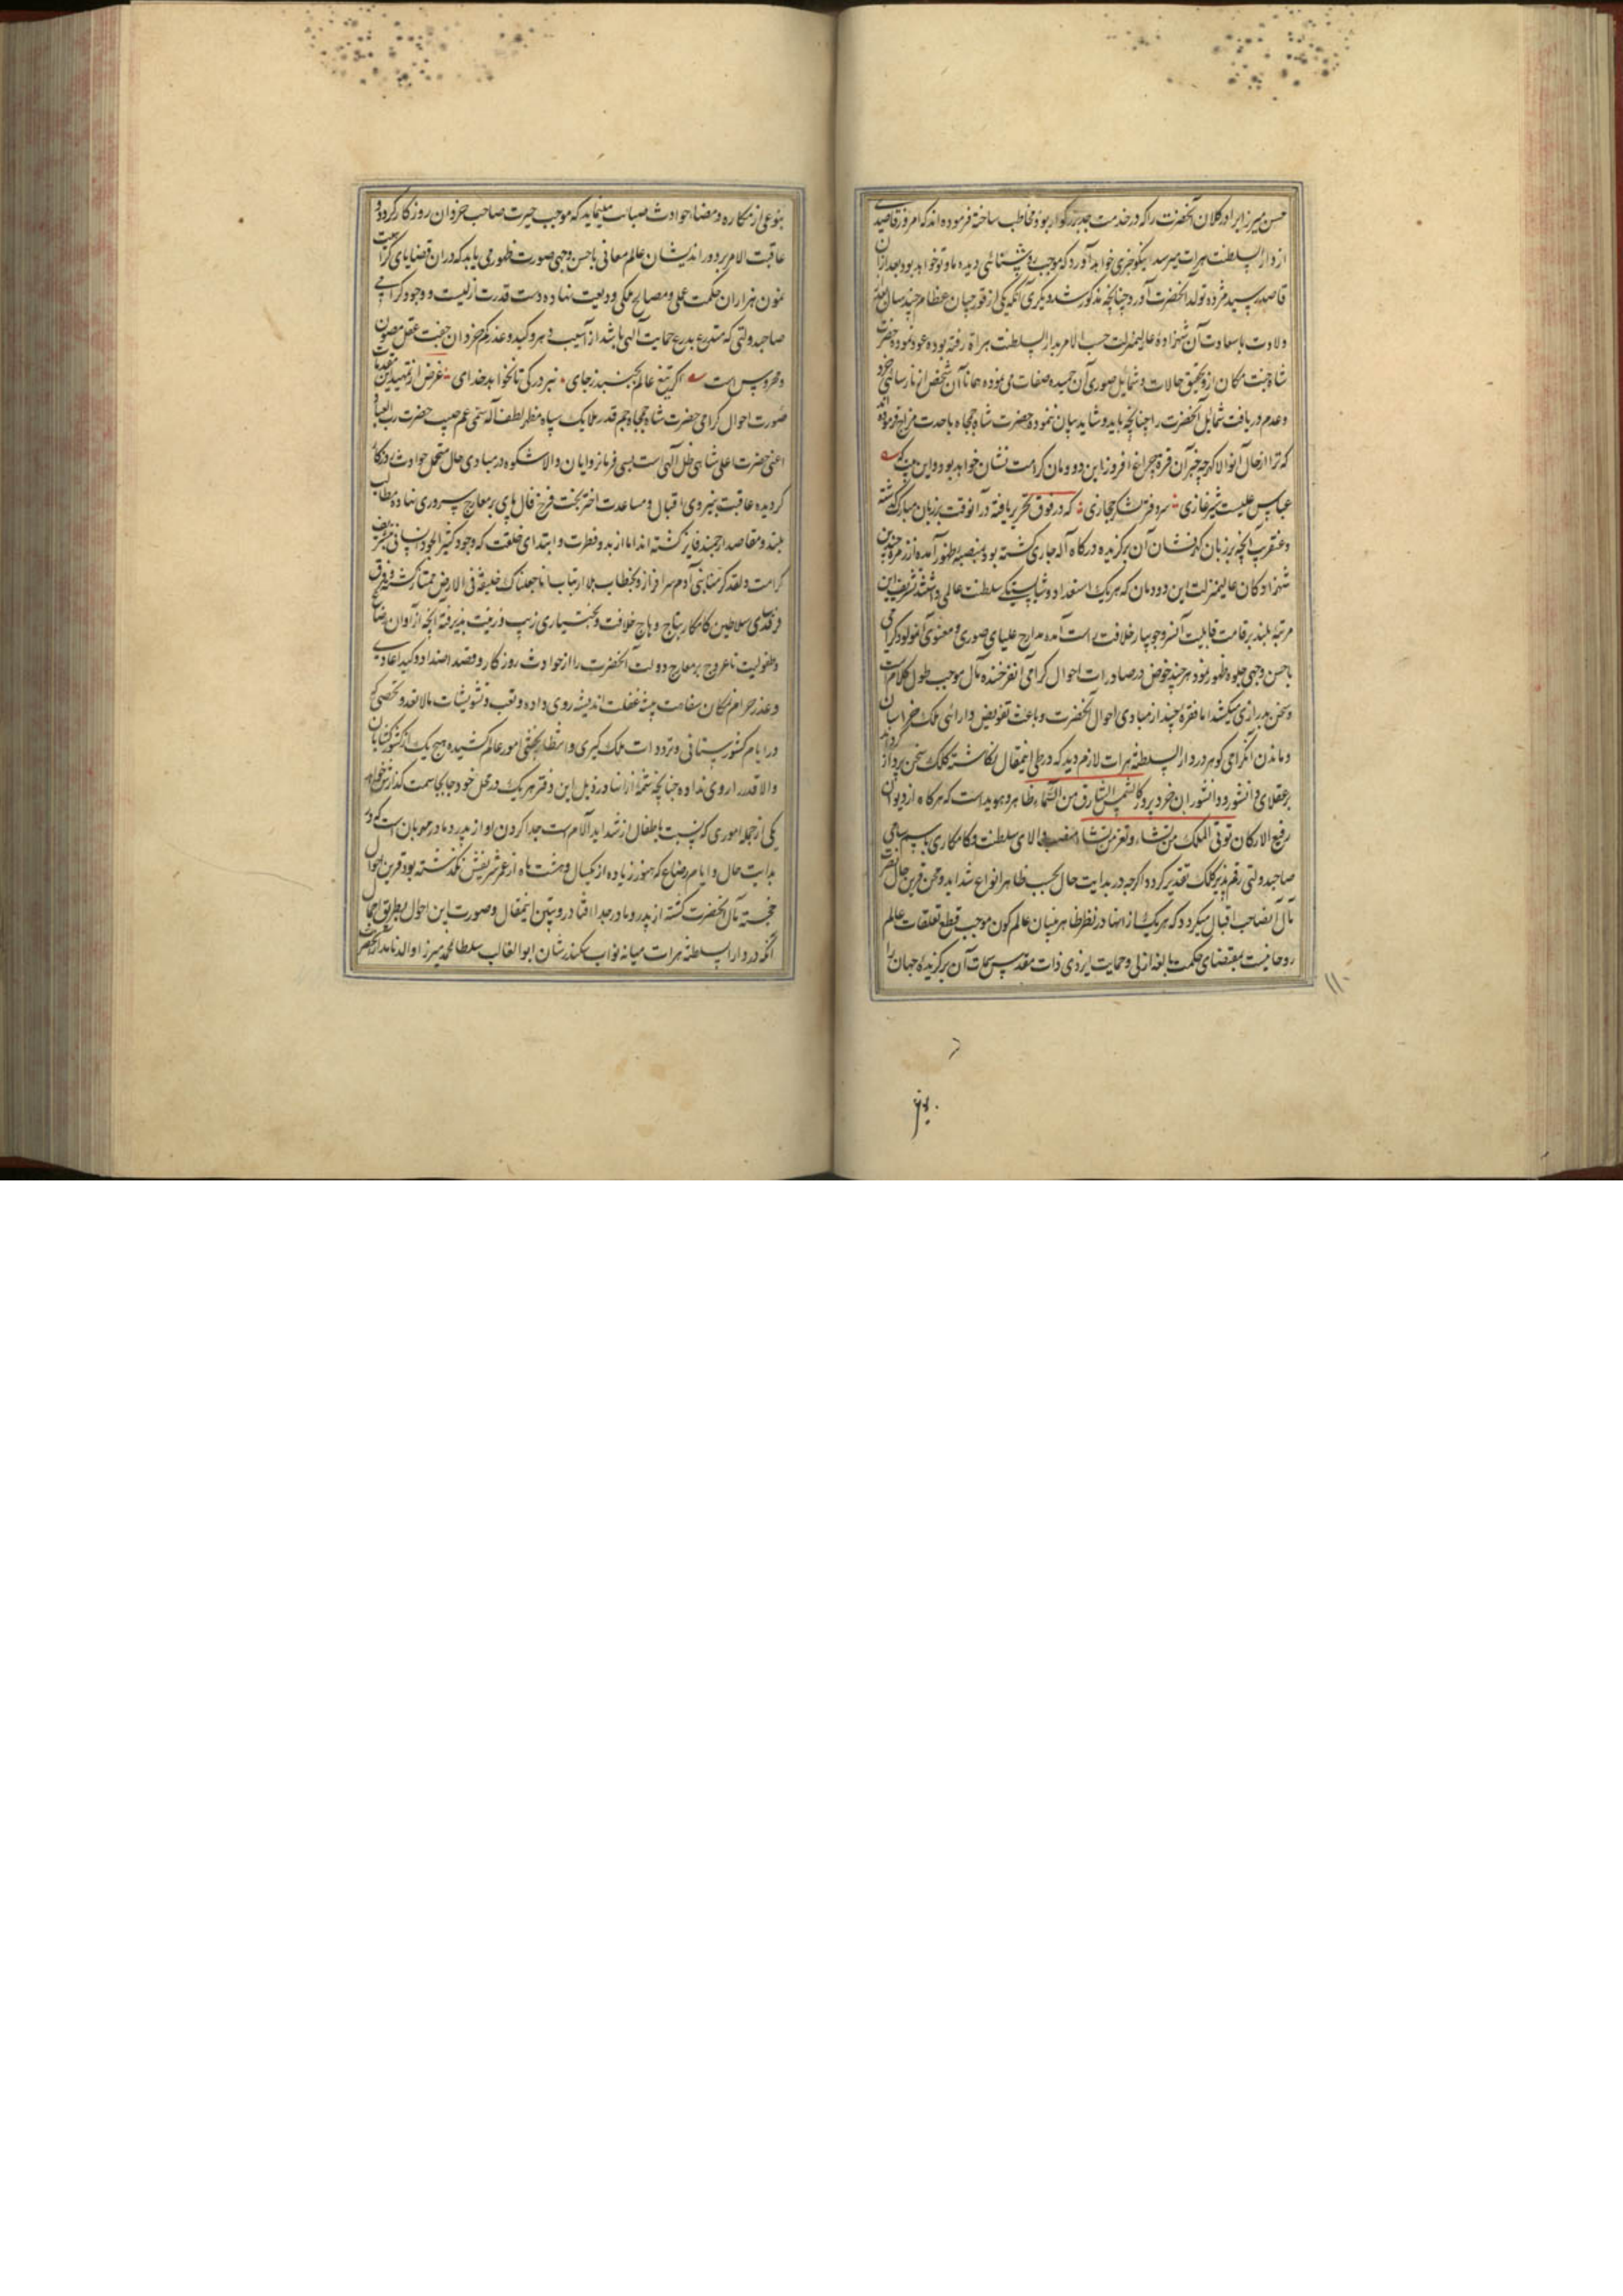 حسن میرزا برادر کلان آنحضرت را که در خدمت جد بزرگوار بود مخاطب ساخته فرموده اند که امروز قاصدی
از دار السلطنت هرات میرسد نیکو خبری خواهد آورد که موجب روشنائی دیده ما و تو خواهد بود بعد از آن
قاصد رسید مژده تولد آنحضرت آورد چنانچه مذکور شد دیگری آنکه یکی از قورچیان عظام چند سال بعد از
ولادت با سعادت آن شهزاده عالیمنزلت حسب الامر بدار السلطنت هراة رفته بوده عود نموده حضرت
شاه جنت مکان ازو تحقیق حالات و شمایل صوری آن حمیده صفات می نموده همانا آن شخص از نارسائی خرد
و عدم دریافت شمائل آنحضرت را چنانچه باید و شاید بیان ننموده حضرت شاه جمجاه با حدت مزاج فرموده اند
که ترا از حال آن والا گهر چه خبر آن قرة چراغ افروز این دودمان کرامت نشان خواهد بود و این بیت که
عباس علیست شیر غازی سر دفتر لشکر حجازی که در فوق تحریر یافته در آنوقت بر زبان مبارک گذشته
و عنقریب آنچه بر زبان گهرفشان آن برگزیده درگاه آله جاری گشته بود بمنصه ظهور آمده از زمره چندین
شهزادگان عالیمنزلت این دودمان که هر یک استعداد و شایستگی سلطنت عالمی داشتند تشریف این
مرتبه بلند بر قامت قابلیت آن سرو جویبار خلافت راست آمده مدارج علیای صوری و معنوی آن مولود گرامی
باحسن وجهی جلوه ظهور نمود هر چند خوض در صادرات احوال گرامی آنفرخنده مآل موجب طول کلام است
و سخن بدرازی میکشد اما فقره چند از مبادی احوال آنحضرت و باعث تفویض دارائی ملک خراسان
و ماندن آن گرامی گوهر در دار السلطنه هرات لازم دید که در طی اینمقال نگاشته کلک سخن پرداز گرداند
بر عقلای دانشور و دانشوران خرد پرور کالشمس الشارق من السماء ظاهر و هویداست که هرگاه از دیوان
رفیع الارکان تؤتی الملک من تشاء و تعز من تشاء منصب والای سلطنت و کامکاری باسم سامی
صاحبدولتی رقم پذیر کلک تقدیر گردد اگرچه در بدایت حال بحسب ظاهر انواع شداید و محن قرین حال
مآل آنصاحب اقبال میگردد که هر یک از آنها در نظر ظاهر بینان عالم کون موجب قطع تعلقات عالم
روحانیست بمقتضای حکمت بالغه ازلی و حمایت ایزدی ذات مقدس سمات آن برگزیده جهان را
۱۱۰
بنوعی از مکاره و مضار حوادث صیانت مینماید که موجب حیرت صاحب خردان روزگار گردد و
عاقبت الامر بر دور اندیشان عالم معانی باحسن وجهی صورت ظهور می یابد که در آن قضایای
فنون هزاران حکمت عملی و مصالح ملکی ودیعت نهاده دست قدرت ازلیست و وجود گرامی
صاحبدولتی که متدرع بدرع حمایت الهی باشد از آسیب دهر و کید و غدر کم خردان خفت عقل مصون
و محروس است اگر تیغ عالم بجنبد ز جای نبرد رگی تا نخواهد خدای غرض از تمهید این مقدمات
صورت احوال گرامی حضرت شاه جمجاه جم قدر ملایک سپاه مظهر لطف آله سمی عم حبیب حضرت رب العباد
اعنی حضرت اعلی شاهی ظل الهی است بسی فرمانروایان والاشکوه در مبادی حال متحمل حوادث روزگار
گردیده عاقبت بنیروی اقبال و مساعدت اختر بخت فرخ فال پای بر معارج سروری نهاده بمطالب
بلند و مقاصد ارجمند فایز گشته اند اما از بدو فطرت و ابتدای خلقت که وجود کثیر الجود انسانی بتشریف
کرامت و لقد کرمنا بنی آدم سرافراز و بخطاب بلا ارتیاب انا جعلناک خلیفة فی الارض ممتاز گشته و فرق
فرقدسای سلاطین کامکار بتاج وهاج خلافت و بختیاری زیب و زینت پذیرفته آنچه از آوان رضاع
و طفولیت تا عروج بر معارج دولت آنحضرت را از حوادث روزگار و قصد اضداد و کید اعادی
و غدر حرامنمکان سفاهت پیشه غفلت اندیشه روی داده و تعب و تشویشات مالا یعد و تحصی که
در ایام کشورستانی و ترددات ملک گیری و انتظام بخشی امور عالم کشیده هیچ یک از کشورگشایان
والاقدر را روی نداده چنانچه شمه از آنها در ذیل این دفتر هر یک در محل خود جابجا سمت گذارش خواهد
یکی از جمله اموری که نسبت باطفال از شداید آلام است جدا کردن او از پدر و مادر مهربان است که در
بدایت حال و ایام رضاع که هنوز زیاده از یکسال و هشت ماه از عمر شریفش نگذشته بود قرین احوال
خجسته مآل آنحضرت گشته از پدر و مادر جدا افتاد و تبیین اینمقال و صورت این احوال بطریق اجمال
آنکه در دار السلطنه هرات میانه نواب سکندرشان ابو الغالب سلطان محمد میرزا والد نامدار آنحضرت